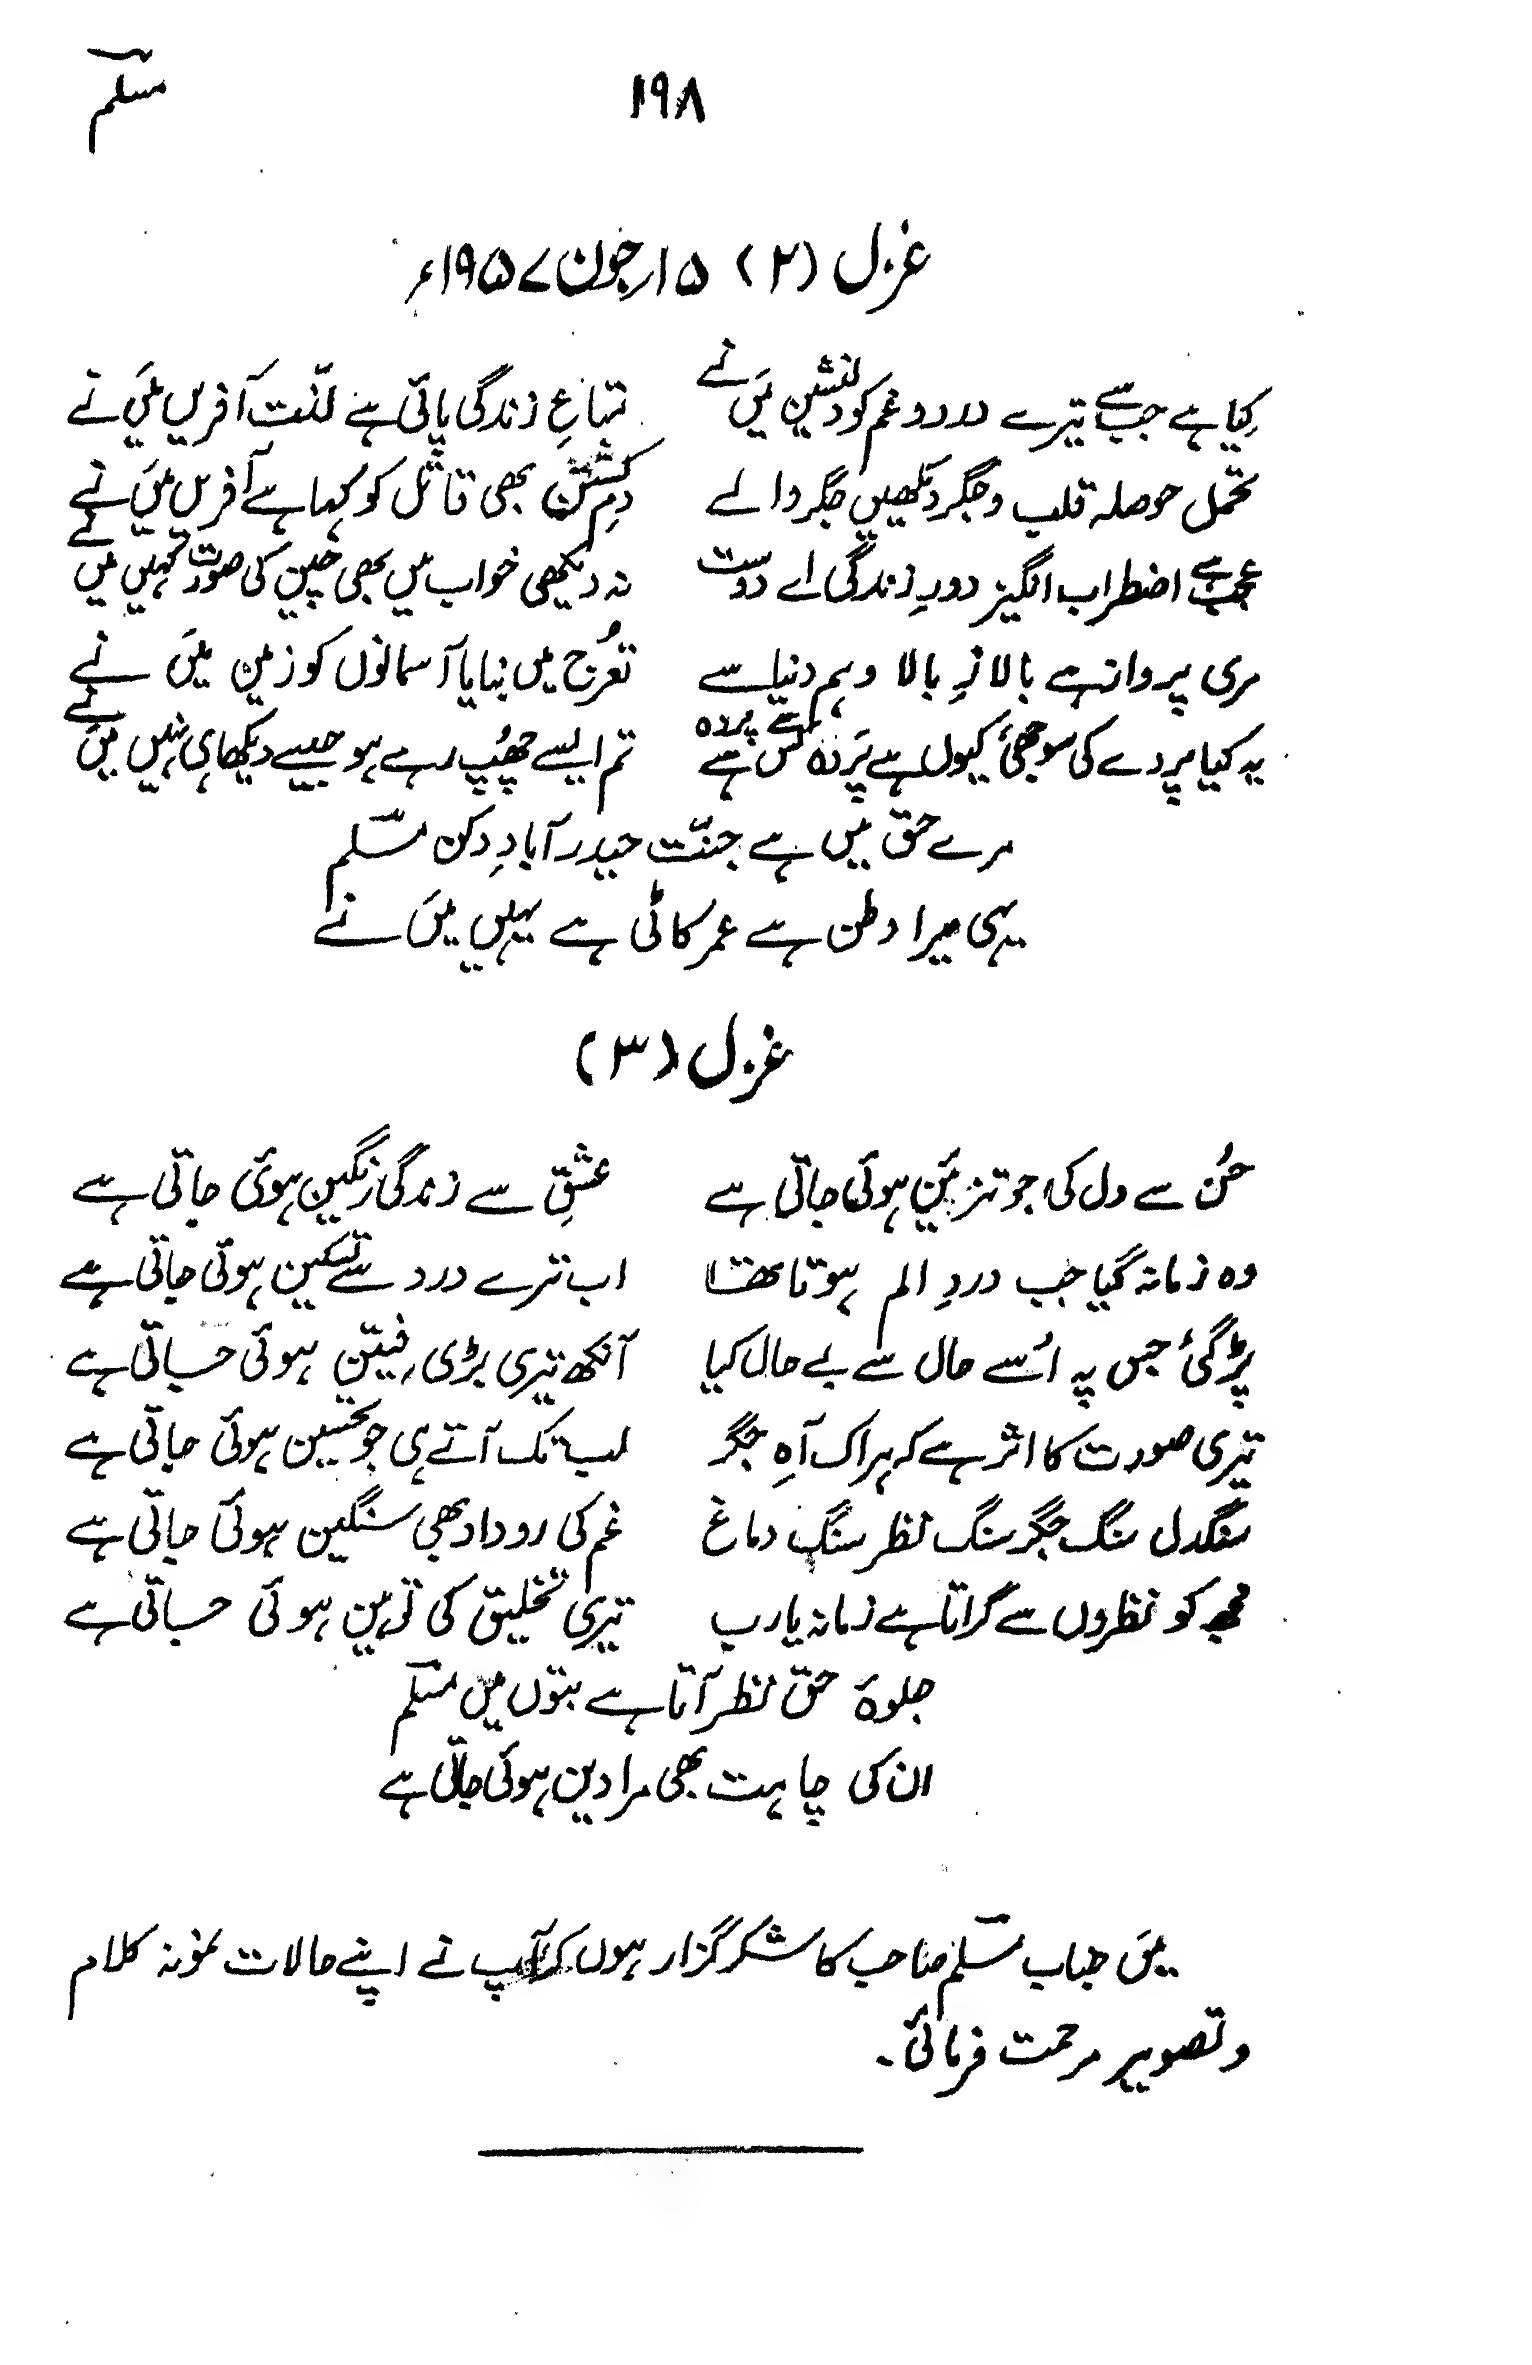 ۱۹۸
مسلم
غزل (۲) ۱۵؍جون ۱۹۵۷ء
کیا ہے جب سے تیرے درد و غم کو دلنشین میں نے متاعِ زندگی پائی ہے لذّت آفریں میں نے
تحمل حوصلہ قلب و جگر دیکھیں جگر والے دمِ کشتن بھی قاتل کو کہا ہے آفریں میں نے
عجب ہے اضطراب انگیز دورِ زندگی اے دوست نہ دیکھی خواب میں بھی چین کی صورت کہیں میں نے
مری پرواز ہے بالا زِ بالا وہم دنیا سے تعرُج میں بنایا آسمانوں کو زمین میں نے
یہ کیا پردے کی سوجھی کیوں ہے پردہ کس سے ہے پردہ تم ایسے چھُپ رہے ہو جیسے دیکھا ہی نہیں میں نے
مرے حق میں ہے جنّت حیدرآبادِ دکن مسلم
یہی میرا وطن ہے عمر کاٹی ہے یہیں میں نے
غزل (۳)
حُسن سے دل کی جو تزئین ہوئی جاتی ہے عشق سے زندگی رنگین ہوئی جاتی ہے
وہ زمانہ گیا جب دردِ الم ہوتا تھا اب ترے درد سے تسکین ہوئی جاتی ہے
پڑ گئی جس پہ اُسے حال سے بے حال کیا آنکھ تیری بڑی فیتن ہوئی جاتی ہے
تیری صورت کا اثر ہے کہ ہر اک آہِ جگر لب تک آتے ہی جو تحسین ہوئی جاتی ہے
سنگدل سنگ جگر سنگ نظر سنگ دماغ غم کی روداد بھی سنگین ہوئی جاتی ہے
مجھ کو نظروں سے گراتا ہے زمانہ یارب تیری تخلیق کی توہین ہوئی جاتی ہے
جلوۂ حق نظر آتا ہے بتوں میں مسلم
ان کی چاہت بھی مرا دین ہوئی جاتی ہے
میں جناب مسلم صاحب کا شکر گزار ہوں کہ آپ نے اپنے حالات نمونہ کلام
و تصویر مرحمت فرمائی۔